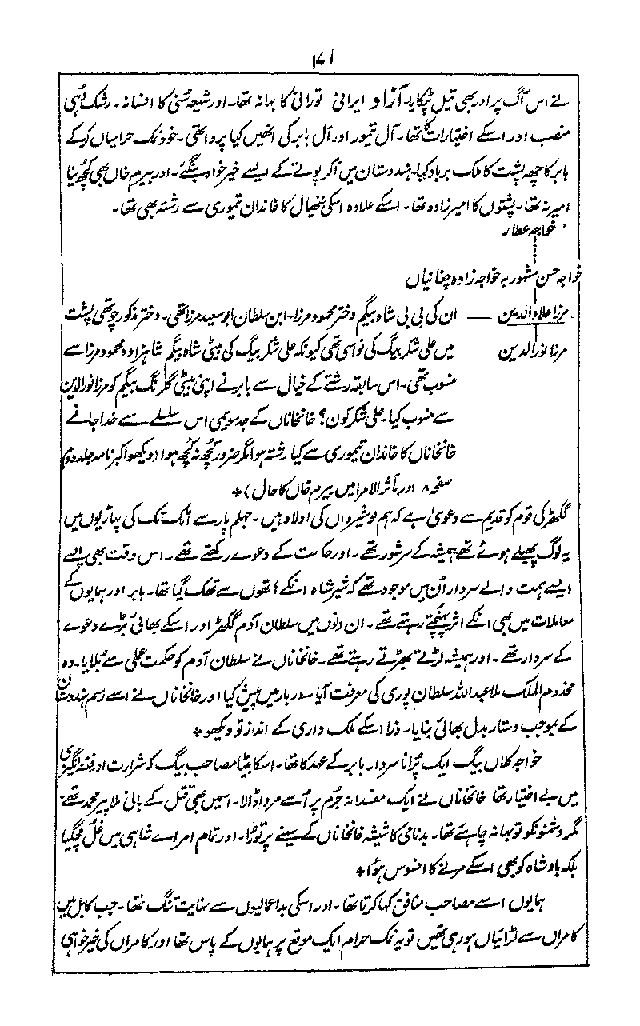 ۱۷۱
نے اس آگ پر اور بھی تیل ٹپکایا۔ آزاد ایرانی تورانی کا بہانہ تھا۔ اور شیعہ سُنی کا افسانہ۔ رشک وہی
منصب اور اسکے اختیارات کا تھا۔ آل تیمور اور آل بابر کی انھیں کیا پروا تھی۔ خود نمک حرامیاں کر کے
بابر کا چھ پشت کا ملک برباد کیا۔ ہندوستان میں آکر پوتے کے ایسے خیر خواہ بنگئے۔ اور بیرم خاں بھی کچھ نیا
امیر نہ تھا۔ پشتوں کا امیرزادہ تھا۔ اسکے علاوہ اسکی ننھیال کا خاندان تیموری سے رشتہ بھی تھا۔
خواجہ عطار
خواجہ حسن مشہور بہ خواجہ زادہ چغانیاں
مرزا علاؤالدین — ان کی بی بی شاہ بیگم دختر محمود مرزا۔ ابن سلطان ابوسعید مرزا تھی۔ دختر مذکور چوتھی پشت
مرزا نورالدین میں علی شکر بیگ کی نواسی تھی کیونکہ علی شکر بیگ کی بیٹی شاہ بیگم شاہزادہ محمود مرزا سے
منسوب تھی۔ اس سابقہ رشتے کے خیال سے بابر نے اپنی بیٹی گلرنگ بیگم کو مرزا نورالدین
سے منسوب کیا۔ علی شکر کون؟ خانخاناں کے جد۔ بھی اس سلسلے سے خدا جانے
خانخاناں کا خاندان تیموری سے کیا رشتہ ہوا مگر ضرور کچھ نہ کچھ ہوا (دیکھو اکبر نامہ جلد دوم
صفحہ ۸ اور مآثر الامرا میں بیرم خاں کا حال)+
گکھڑ کی قوم کو قدیم سے دعویٰ ہے کہ ہم نوشیرواں کی اولاد ہیں۔ جہلم پار سے اٹک تک کی پہاڑیوں میں
یہ لوگ پھیلے ہوئے تھے ہمیشہ کے سرشور تھے۔ اور حکومت کے دعوے رکھتے تھے۔ اس وقت بھی ایسے
ایسے ہمت والے سردار اُن میں موجود تھے کہ شیر شاہ انکے ہاتھوں سے تھک گیا تھا۔ بابر اور ہمایوں کے
معاملات میں بھی انکے اثر پہنچتے رہتے تھے۔ ان دنوں میں سلطان آدم گکھڑ اور اسکے بھائی بڑے دعوے
کے سردار تھے۔ اور ہمیشہ لڑتے بھڑتے رہتے تھے۔ خانخاناں نے سلطان آدم کو حکمت عملی سے بلایا۔ وہ
مخدوم الملک ملا عبداللہ سلطان پوری کی معرفت آیا۔ دربار میں پیش کیا اور خانخاناں نے اسے رسم ہندوستان
کے بموجب دستار بدل بھائی بنایا۔ ذرا اسکے ملک داری کے انداز تو دیکھو+
خواجہ کلاں بیگ ایک پُرانا سردار۔ بابر کے عہد کا تھا۔ اسکا بیٹا مصاحب بیگ کہ شرارت اور فتنہ انگیزی
میں بے اختیار تھا خانخاناں نے ایک مفسدانہ جرم پر اُسے مروا ڈالا۔ اسمیں بھی قتل کے بانی ملا پیر محمد تھے
مگر دشمنونکو تو بہانہ چاہئے تھا۔ بدنامی کا شیشہ خانخاناں کے سینے پر توڑا۔ اور تمام امرائے شاہی میں غل مچ گیا
بلکہ بادشاہ کو بھی اسکے مرنے کا افسوس ہوا+
ہمایوں اسے مصاحب منافق کہا کرتا تھا۔ اور اسکی بداعمالیوں سے نہایت تنگ تھا۔ جب کابل میں
کامراں سے لڑائیاں ہو رہی تھیں تو یہ نمک حرام ایک موقع پر ہمایوں کے پاس تھا اور کامراں کی خیر خواہی